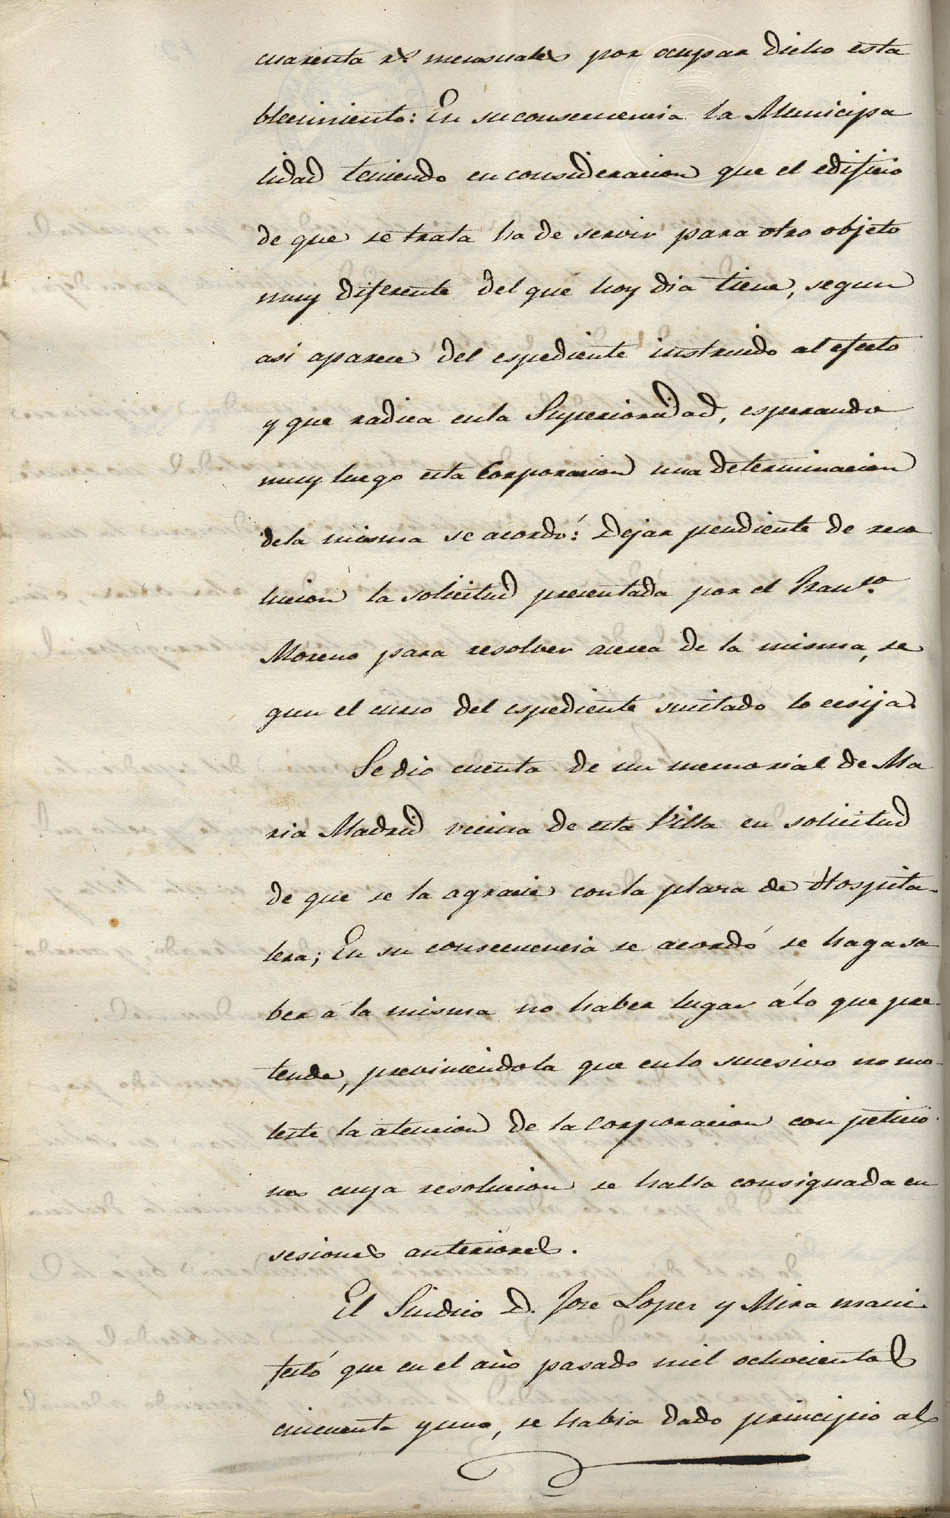 cuarenta rs mensuales por ocupar dicho esta
blecimiento: En su consecuencia la Municipa
lidad teniendo en consideracion que el edificio
de que se trata ha de servir para otro objeto
muy diferente del que hoy dia tiene, segun
asi aparece del espediente instruido al efecto
y que radica en la Superioridad, esperando
muy luego esta Corporacion una determinacion
de la misma se acordó: Dejar pendiente de reso
lucion la solicitud presentada por el Franco.
Moreno para resolver acerca de la misma, se
gun el curso del espediente suscitado lo ecsija
Se dio cuenta de un memorial de Ma
ria Madrid vecina de esta Villa en solicitud
de que se la agracie con la plaza de Hospita-
lera; En su consecuencia se acordó se haga sa
ber á la misma no haber lugar á lo que pre-
tende, previniendola que en lo sucesivo no mo-
leste la atencion de la Corporacion con peticio
nes cuya resolucion se halla consignada en
sesiones anteriores.
El Sindico D. José Lopez y Mira mani
festó que en el año pasado mil ochocientos
cincuenta y uno, se habia dado principio al